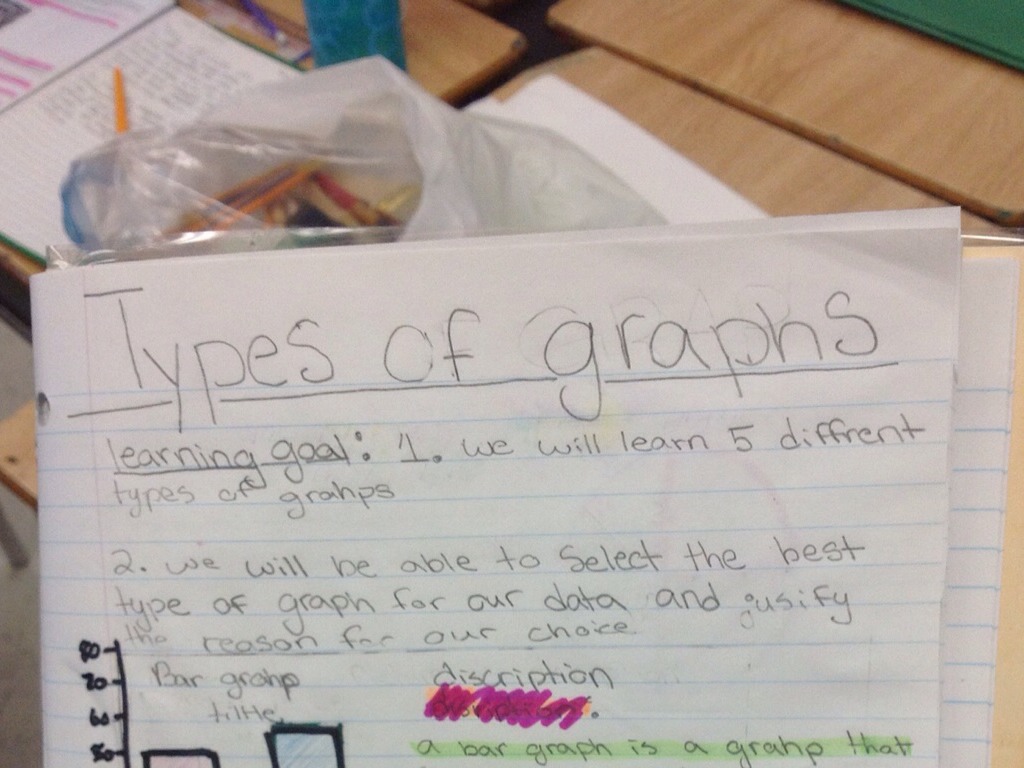 Types of graphs
learning goal: 1. we will learn 5 diffrent
types of grahps
2. we will be able to Select the best
type of graph for our data and jusify
the reason for our choice
80
70 Bar grahp discription
60 tiltle
50 a bar graph is a grahp that